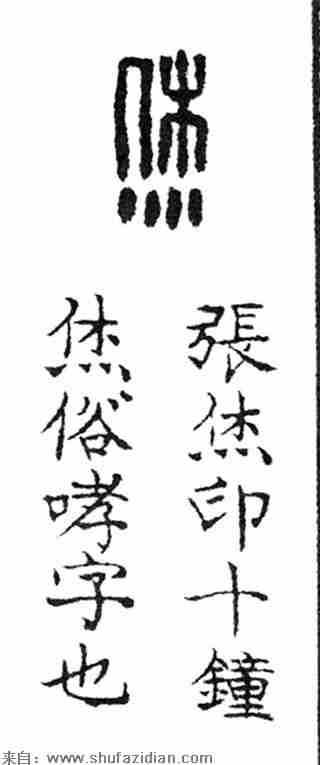 烋
張烋印十鐘
烋俗哮字也
来自：www.shufazidian.com